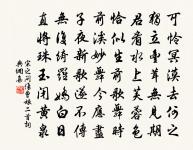 可憐冥漠去何之
獨立豐茸無見期
君看水上芙蓉色
恰似生前歌舞時
前溪妙舞今應盡
子夜新歌遂不傳
無復綺羅嬌白日
直將珠玉閉黃泉
宋之問傷曹娘二首詞